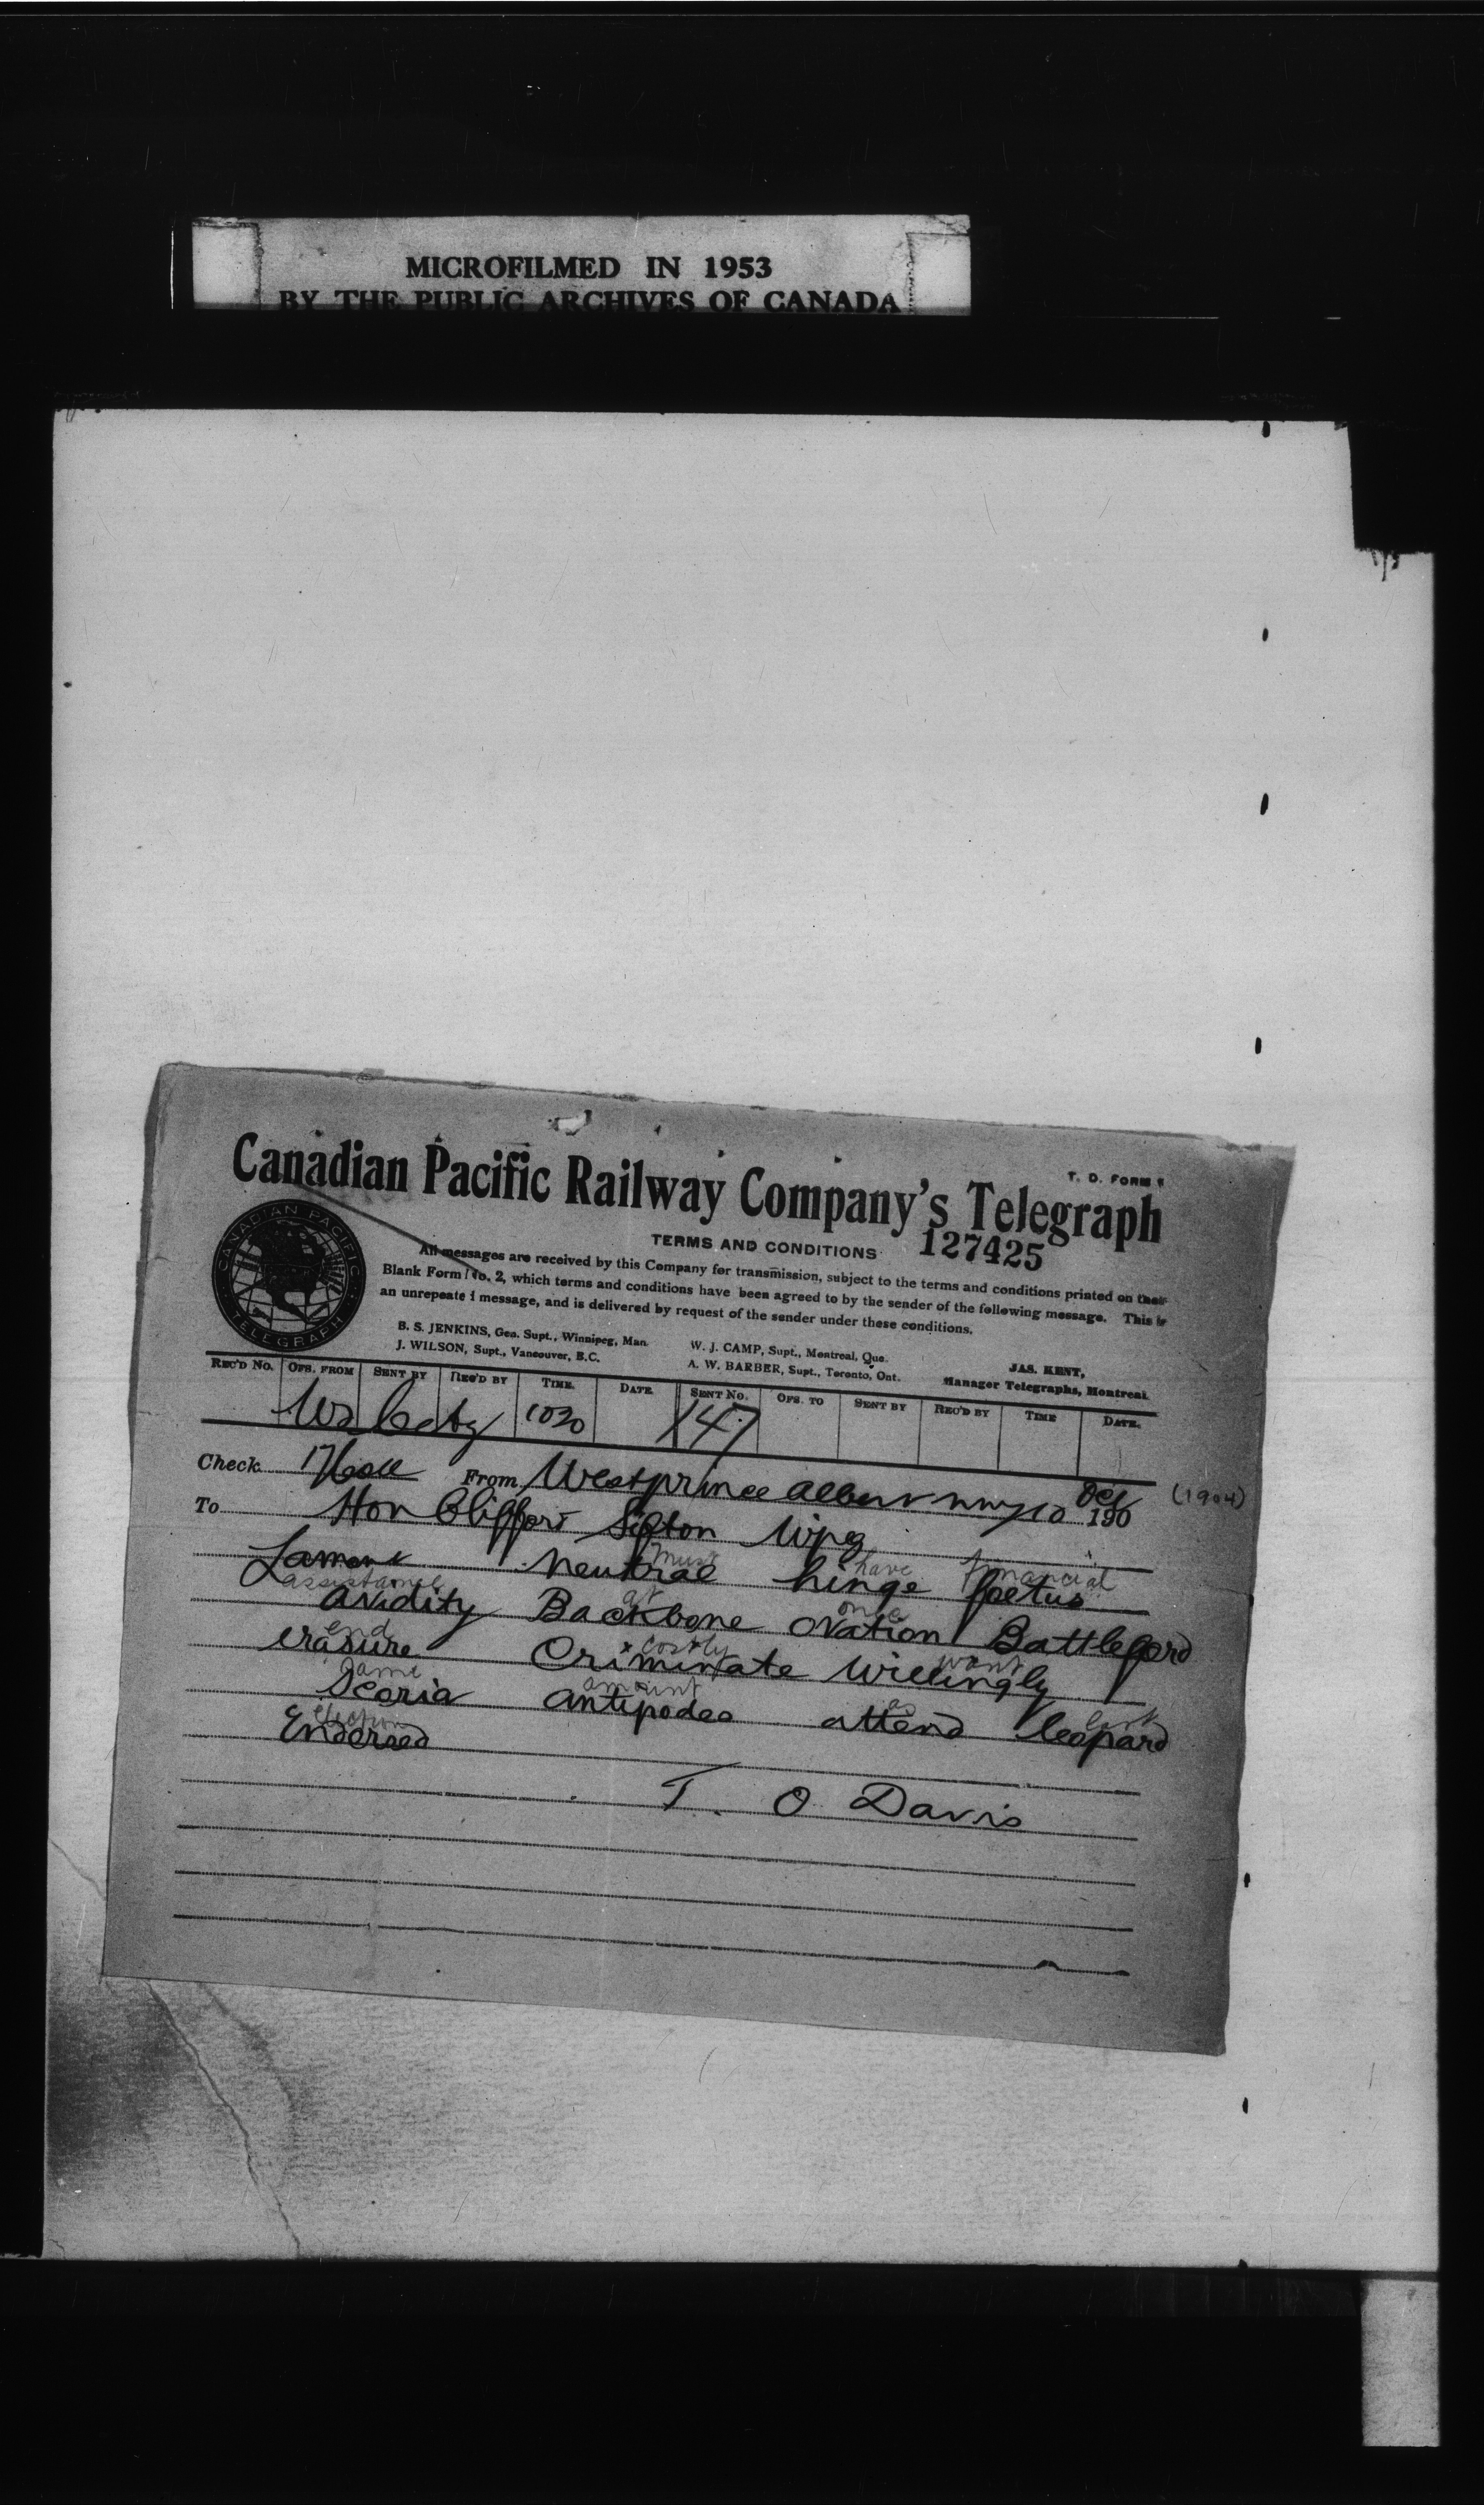 MICROFILMED IN 1953
BY THE PUBLIC ARCHIVES OF CANADA
T. D. FORM 1
Canadian Pacific Railway Company's Telegraph
127425
TERMS AND CONDITIONS
All messages are received by this Company for transmission, subject to the terms and conditions printed on their
Blank Form No. 2, which terms and conditions have been agreed to by the sender of the following message. This is
an unrepeated message, and is delivered by request of the sender under these conditions.
CANADIAN PACIFIC
TELEGRAPH
B. S. JENKINS, Gen. Supt., Winnipeg, Man.
J. WILSON, Supt., Vancouver, B.C.
W. J. CAMP, Supt., Montreal, Que.
A. W. BARBER, Supt., Toronto, Ont.
JAS. KENT,
Manager Telegraphs, Montreal
REC'D NO. OFS. FROM SENT BY REC'D BY TIME. DATE SENT NO. OFS. TO SENT BY REC'D BY TIME DATE.
1030 147
Check From West prince albert nwt 10 Oct 190 (1904)
To Hon Clifford Sifton Wpg
must have financial
Lamont neutral hinge foetus
assistance at once
avidity Backbone ovation Battleford
end costly want
erasure Criminate willingly
same amount as last
Scoria antipodes attend leopard
election
Endorsed
T. O Davis